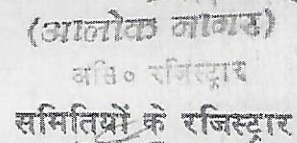 (आलोक नागर)
असि० रजिस्ट्रार
समितियों के रजिस्ट्रार